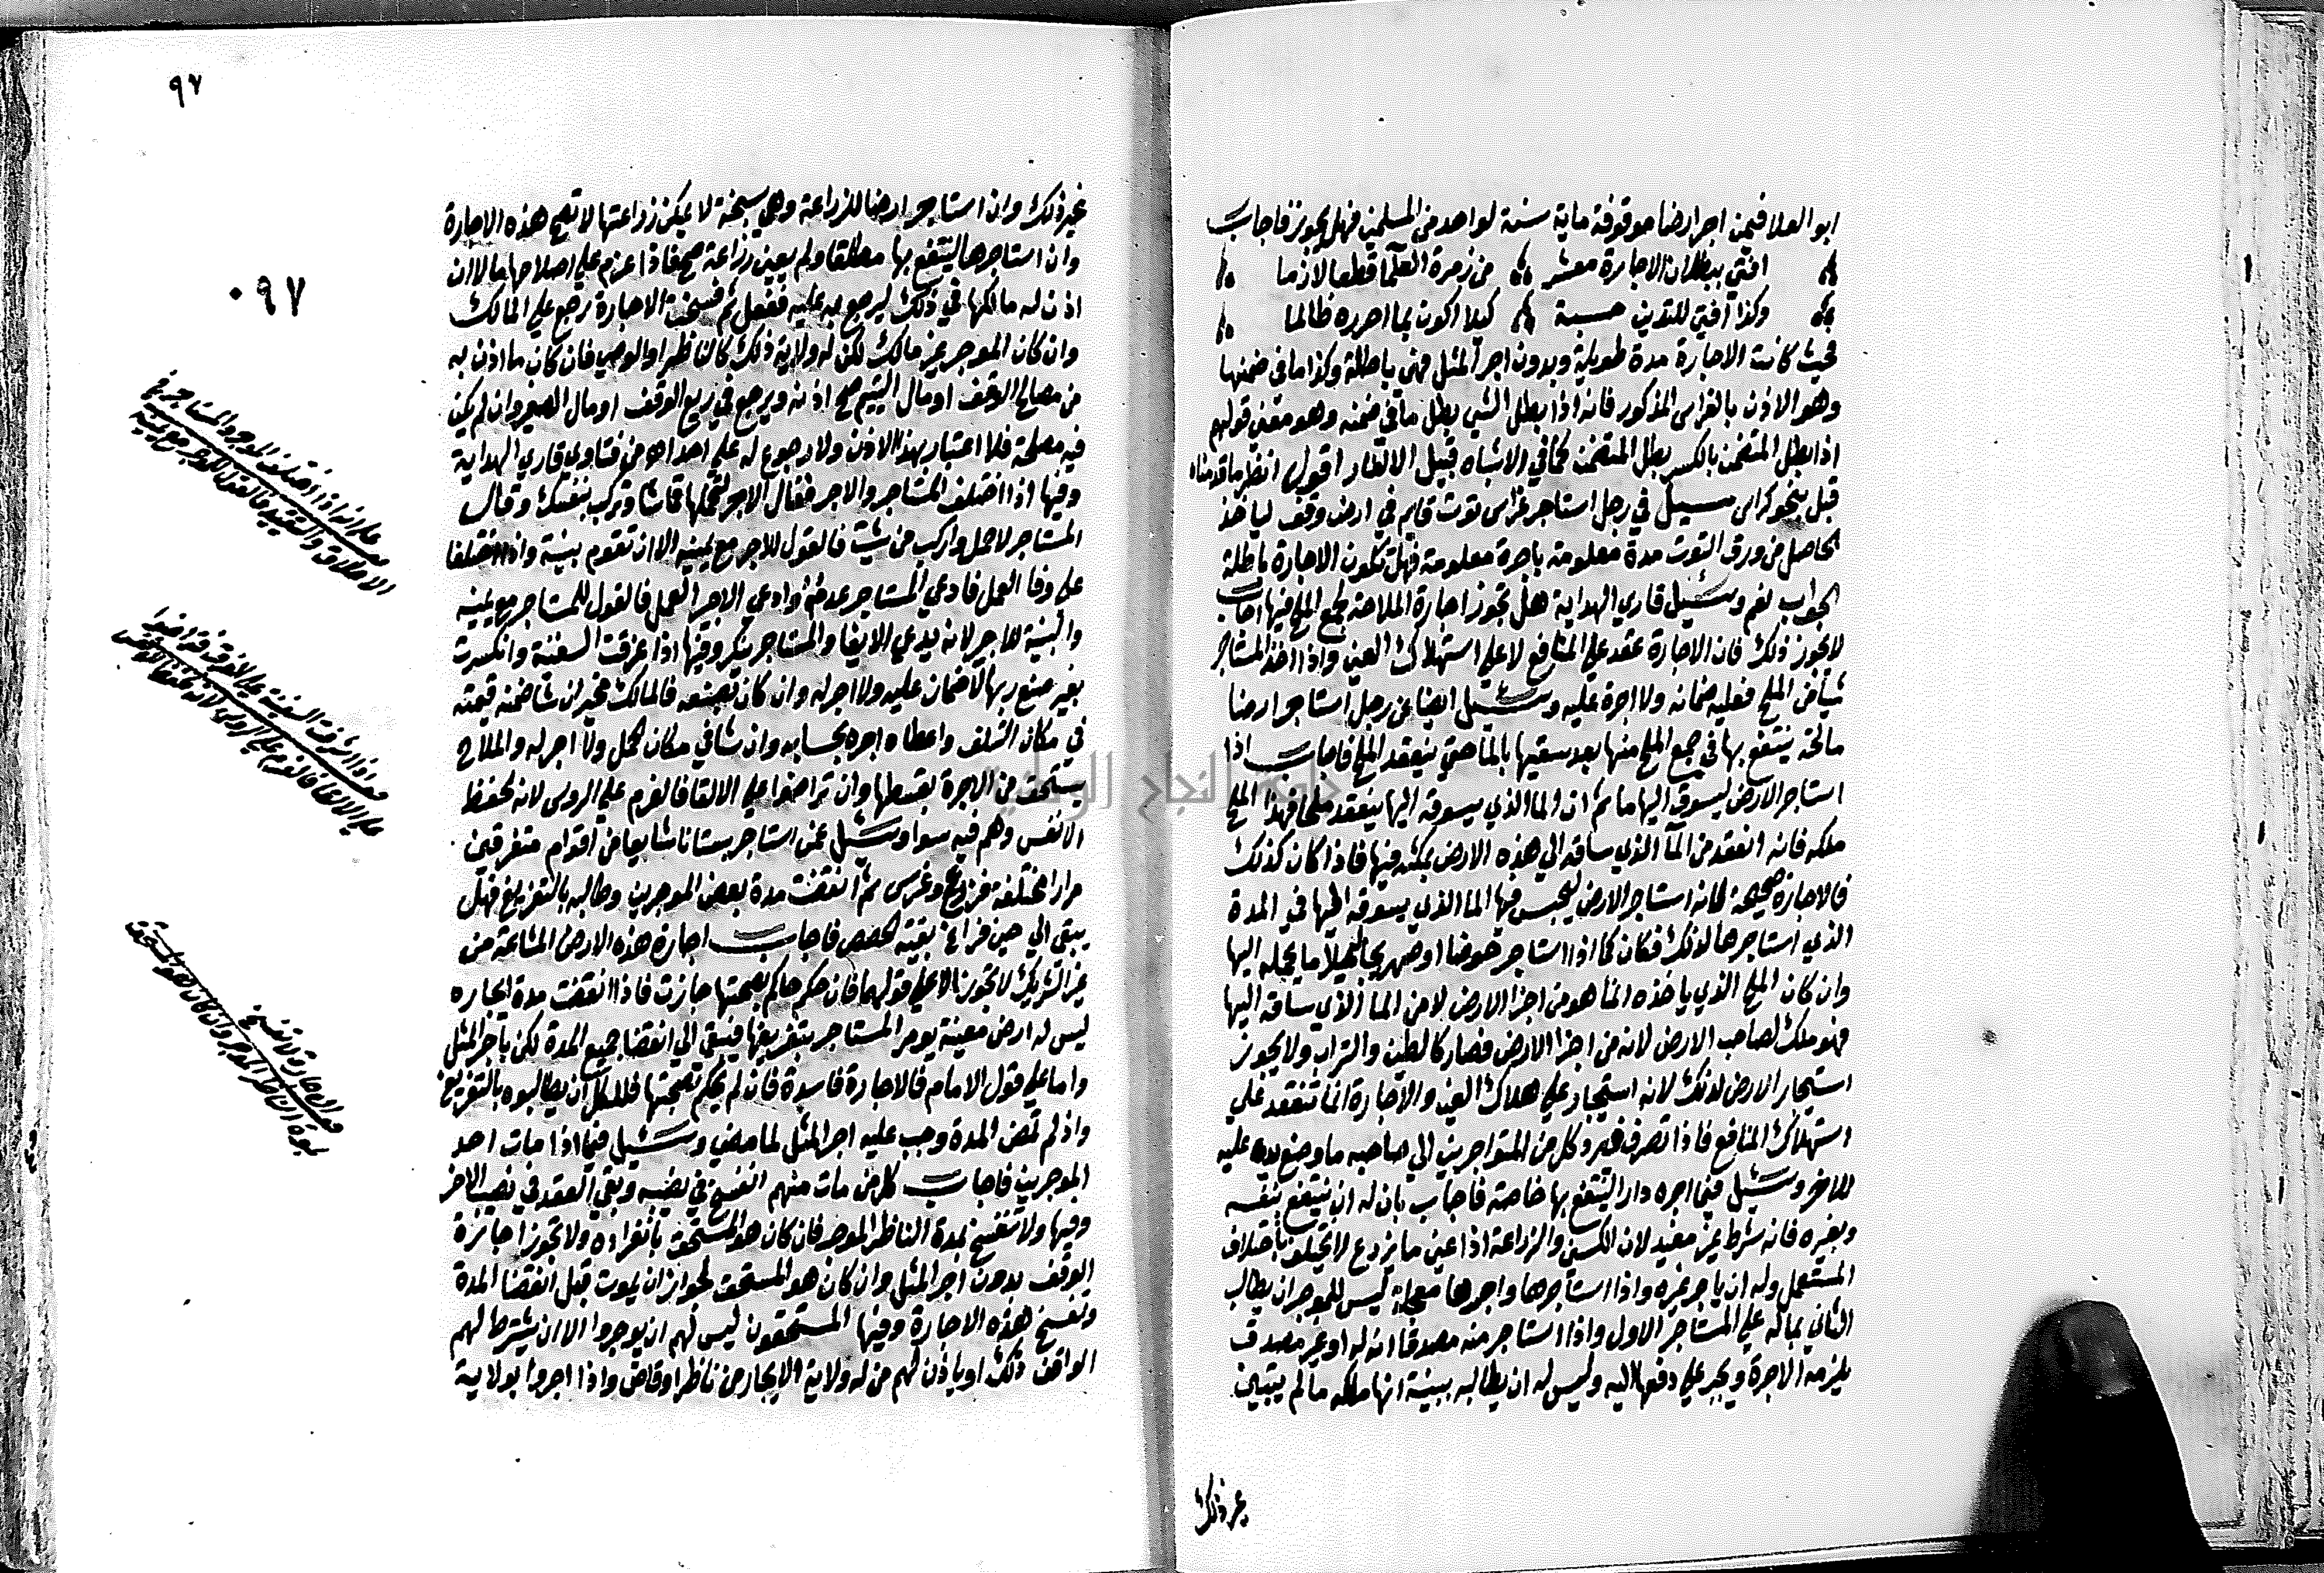 ابو العلا فيمن اجر ارضا موقوفة ماية سنة لواحد من المسلمين فهل يجوز فاجاب
افتى ببطلان الاجارة معشر من زمرة العلما قطعا لازما
وكذا افتى للتدين حسبة كيلا اكون بما احرره ظالما
فحيث كانت الاجارة مدة طويلة وبدون اجر المثل فهي باطلة وكذا ما في ضمنها
وهو الاذن بالغراس المذكور فانه اذا بطل الشي بطل ما في ضمنه وهو معنى قولهم
اذا بطل المتضمن بالكسر بطل المتضمن كما في الاشباه قبيل الالغاز اقول انظر ما قدمناه
قبل بنحو كراس سيل في رجل استاجر غراس توت قايم في ارض وقف لياخذ
الحاصل من ورق التوت مدة معلومة باجرة معلومة فهل تكون الاجارة باطلة
الجواب نعم وسيل قاري الهداية هل تجوز اجارة الملاحة لجمع الملح فيها اجاب
لا يجوز ذلك فان الاجارة عقد على المنافع لا على استهلاك العين واذا اخذ المستاجر
شيأ من الملح فعليه ضمانه ولا اجرة عليه وسيل ايضا عن رجل استاجر ارضا
مالحة ينتفع بها في جمع الملح منها بعد سقيها بالما حتى ينعقد الملح فاجاب اذا
استاجر الارض ليسوق اليها ما ثم ان الما الذي يسوقه اليها ينعقد ملحا فهذا الملح
ملكه فانه انعقد من الما الذي ساقه الى هذه الارض بمكثه فيها فاذا كان كذلك
فالاجارة صحيحة لانه استاجر الارض ليحبس فيها الما الذي يسوقه اليها في المدة
الذي استاجرها لذلك فكان كما اذا استاجر حوضا او صهريجا ليملا ما يجلبه اليها
وان كان الملح الذي ياخذه انما هو من اجزا الارض لا من الما الذي ساقه اليها
فهو ملك لصاحب الارض لانه من اجزا الارض فصار كالطين والتراب ولا يجوز
استيجار الارض لذلك لانه استيجار على هلاك العين والاجارة انما تنعقد على
استهلاك المنافع فاذا تصرف فيرد كل من المتواجرين الى صاحبه ما وضع يده عليه
للاخر وسيل فيمن اجره دارا لينتفع بها خاصة فاجاب بان له ان ينتفع بنفسه
وبغيره فانه شرط غير مفيد لان السكنى والزراعة اذا عين ما يزرع لا يختلف باختلاف
المستعمل وله ان ياجر غيره واذا استاجرها واجرها معجلا ليس للموجر ان يطالب
الثاني بماله على المستاجر الاول واذا استاجر منه مصدقا انه له او غير مصدق
يلزمه الاجرة ويجبر على دفعها اليه وليس له ان يطالبه ببينة انها ملكه ما لم يتبين
غير ذلك
٩٧
٠٩٧
غير ذلك وان استاجر ارضا للزراعة وهي سبخة لا يمكن زراعتها لا تصح هذه الاجارة
وان استاجرها لينتفع بها مطلقا ولم يعين زراعة صح فاذا عزم على اصلاحها مالا ان
اذن له مالكها في ذلك ليرجع به عليه ففعل ثم فسخت الاجارة رجع على المالك
وان كان الموجر غير مالك لكن له ولاية ذلك كالناظر او الوصي فان كان ما اذن به
من مصالح الوقف او مال اليتيم صح اذنه ويرجع في ريع الوقف او مال الصغير وان لم يكن
فيه مصلحة فلا اعتبار بهذا الاذن ولا رجوع له على احد اهـ من فتاوي قاري الهداية
وفيها اذا اختلف المستاجر والاجر فقال الاجر لتحملها قماشا وتركب بنفسك وقال
المستاجر لاحمل واركب من شيت فالقول للاجر مع يمينه الا ان تقوم بينة واذا اختلفا
على وفا العمل فادعى المستاجر عدمه وادعى الاجير العمل فالقول للمستاجر مع يمينه
والبينة للاجير لانه يدعي الايفا والمستاجر ينكر وفيها اذا غرقت السفينة وانكسرت
بغير صنع ربها لا ضمان عليه ولا اجر له وان كان بصنعه فالمالك مخير ان شا ضمنه قيمته
في مكان التلف واعطاه اجره بحسابه وان شا في مكان الحمل ولا اجر له والملاح
يستحق من الاجرة بقسطها وان تراضوا على الالقا فالغرم على الروس لانه لحفظ
الانفس وهم فيه سوا وسيل عمن استاجر بستانا شايعا من اقوام متفرقين
مرارا مختلفة فزرع وغرس ثم انقضت مدة بعض الموجرين وطالبه بالتفريغ فهل
يبقى الى حين فراغ بقية الحصص فاجاب اجارة هذه الارض المشاعة من
غير الشريك لا تجوز الا على قولهما فان حكم حاكم بصحتها جازت فاذا انقضت مدة ايجاره
ليس له ارض معينة يومر المستاجر بتفريغها فيبقى الى انقضا جميع المدة لكن باجر المثل
واما على قول الامام فالاجارة فاسدة فان لم يحكم بصحتها فللكل ان يطالبوه بالتفريغ
واذ لم تمض المدة وجب عليه اجر المثل لما مضى وسيل فيما اذا مات احد
الموجرين فاجاب كل من مات منهم انفسخ في نصيبه وبقي العقد في نصيب الاخر
وفيها ولا تنفسخ بموت الناظر الموجر فان كان هو المستحق بانفراده ولا تجوز اجارة
الوقف بدون اجر المثل وان كان هو المستحق لجواز ان يموت قبل انقضا المدة
وتفسخ هذه الاجارة وفيها المستحقون ليس لهم ان يوجروا الا ان يشترط لهم
الواقف ذلك او ياذن لهم من له ولاية الايجار من ناظر او قاض واذا اجروا بولاية
على انه اذا اختلف الموجر والمستاجر في
الاطلاق والتقييد فالقول للموجر مع يمينه
اذا اشرفت السفينة على الغرق فتراضوا
على الالقا فالغرم على الروس لانه لحفظ الانفس
الاجارة لا تنفسخ
بموت الناظر الموجر وان كان هو المستحق